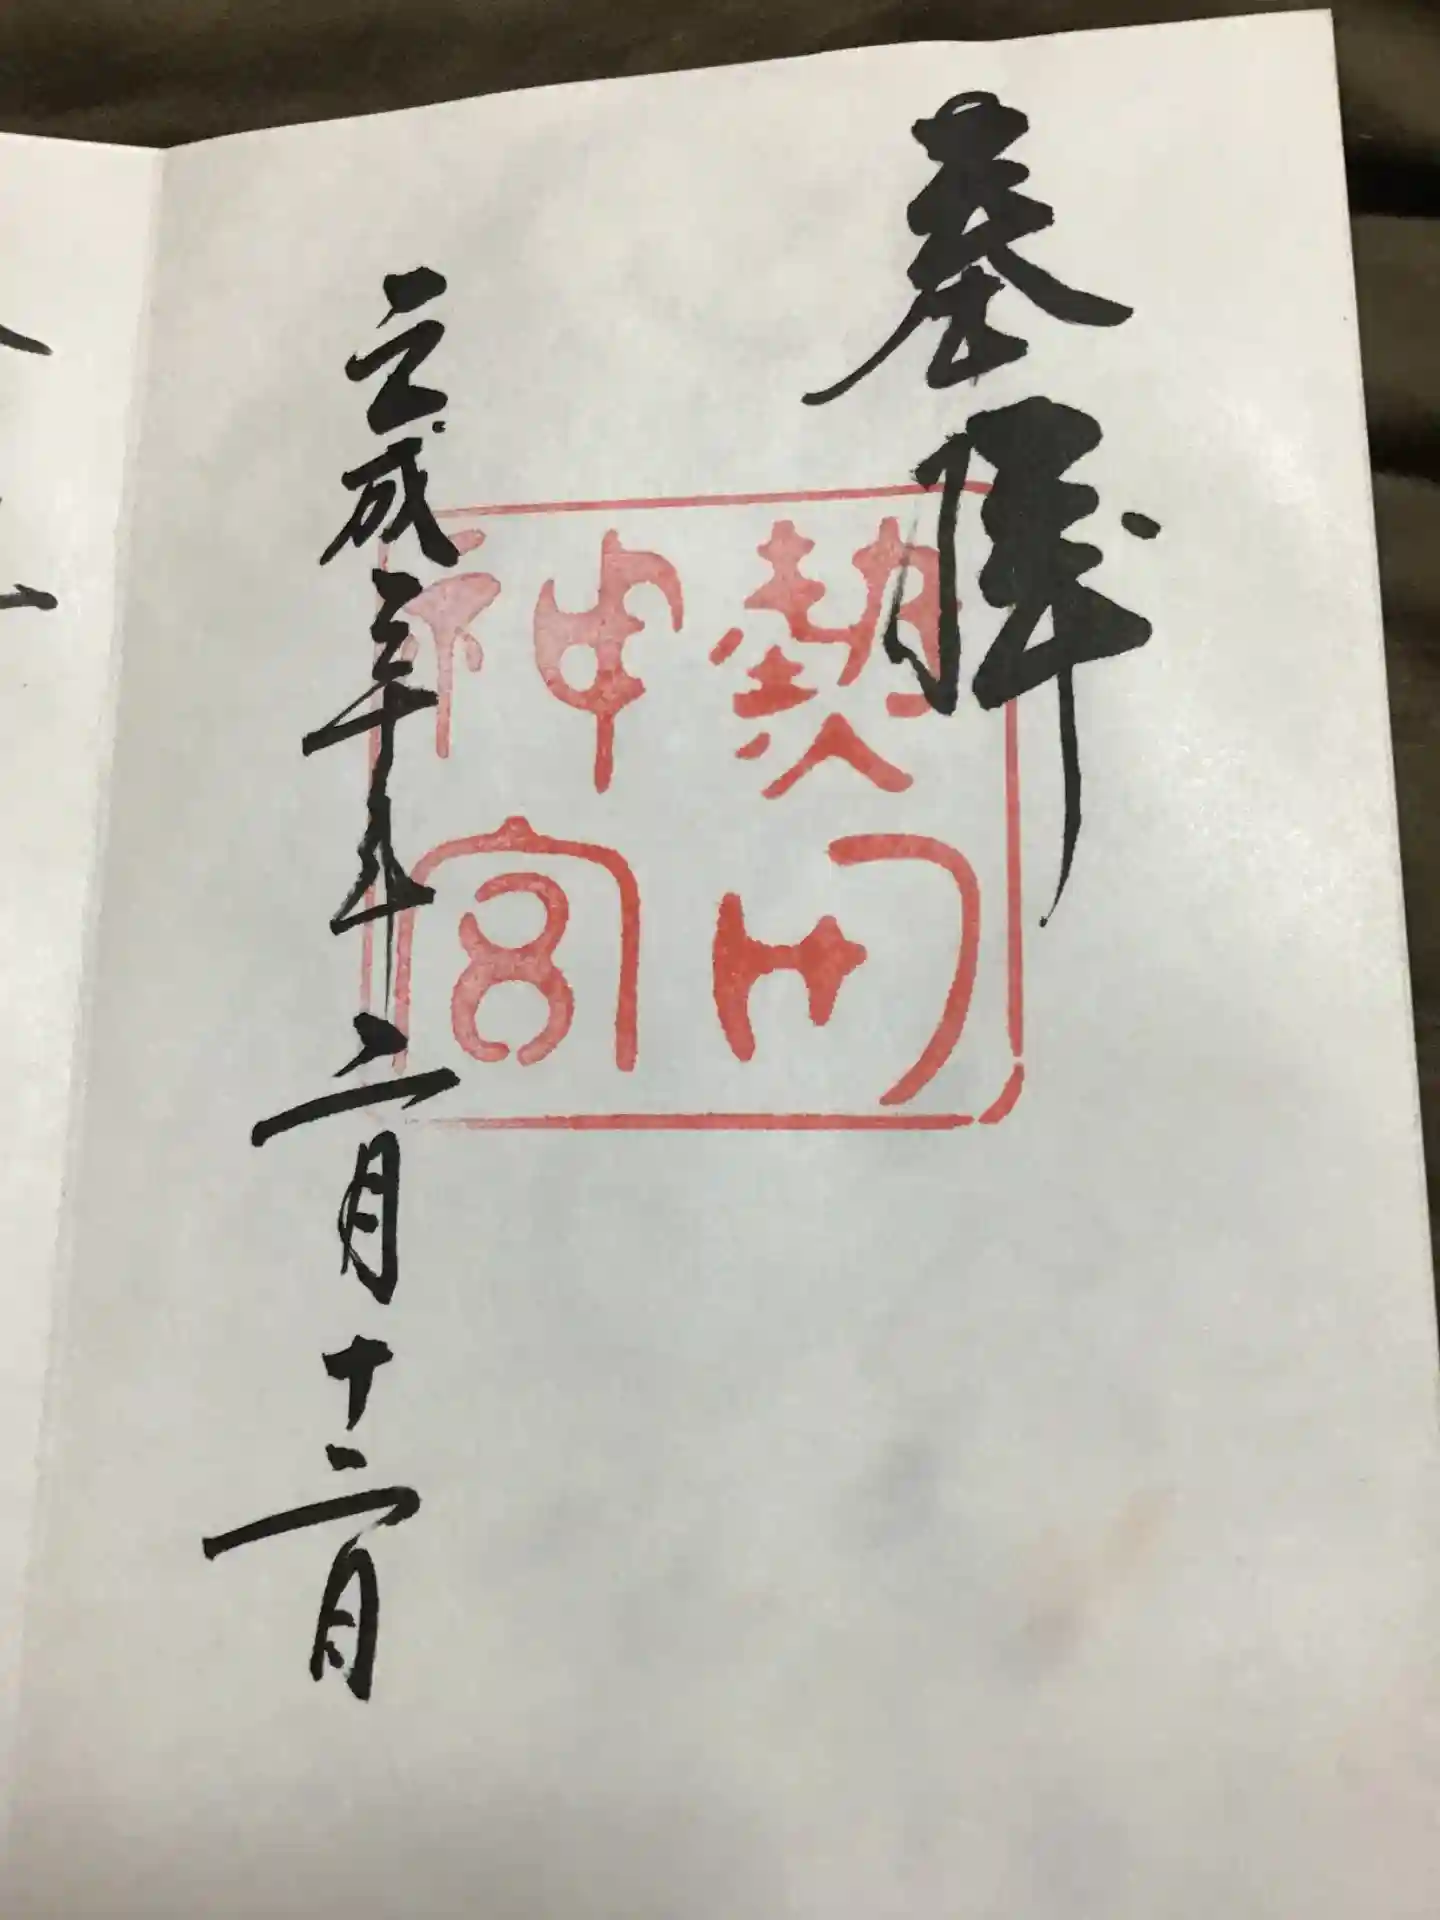 奉拝
熱田神宮
平成三十年二月十二日